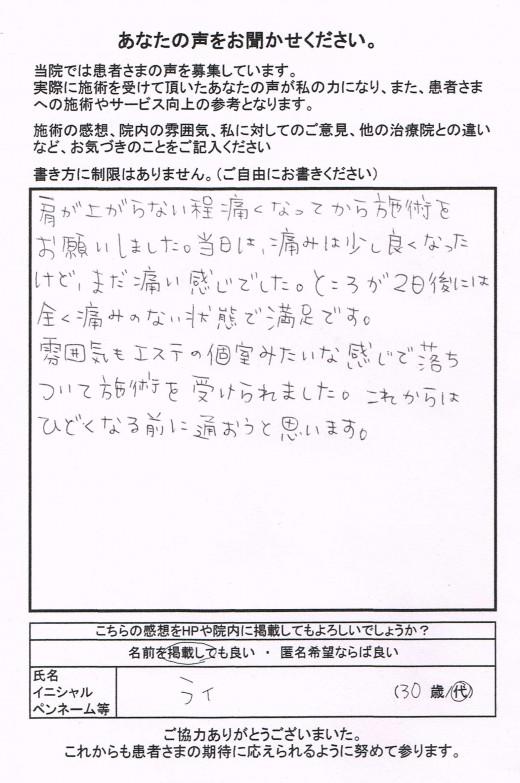 あなたの声をお聞かせください。
当院では患者さまの声を募集しています。
実際に施術を受けて頂いたあなたの声が私の力になり、また、患者さま
への施術やサービス向上の参考となります。
施術の感想、院内の雰囲気、私に対してのご意見、他の治療院との違い
など、お気づきのことをご記入ください
書き方に制限はありません。(ご自由にお書きください)
肩が上がらない程痛くなってから施術を
お願いしました。当日は、痛みは少し良くなった
けど、まだ痛い感じでした。ところが2日後には
全く痛みのない状態で満足です。
雰囲気もエステの個室みたいな感じで落ち
ついて施術を受けられました。これからは
ひどくなる前に通おうと思います。
こちらの感想をHPや院内に掲載してもよろしいでしょうか？
名前を掲載しても良い ・ 匿名希望ならば良い
氏名
イニシャル
ペンネーム等
ライ
(30 歳/代)
ご協力ありがとうございまいた。
これからも患者さまの期待に応えられるように努めて参ります。